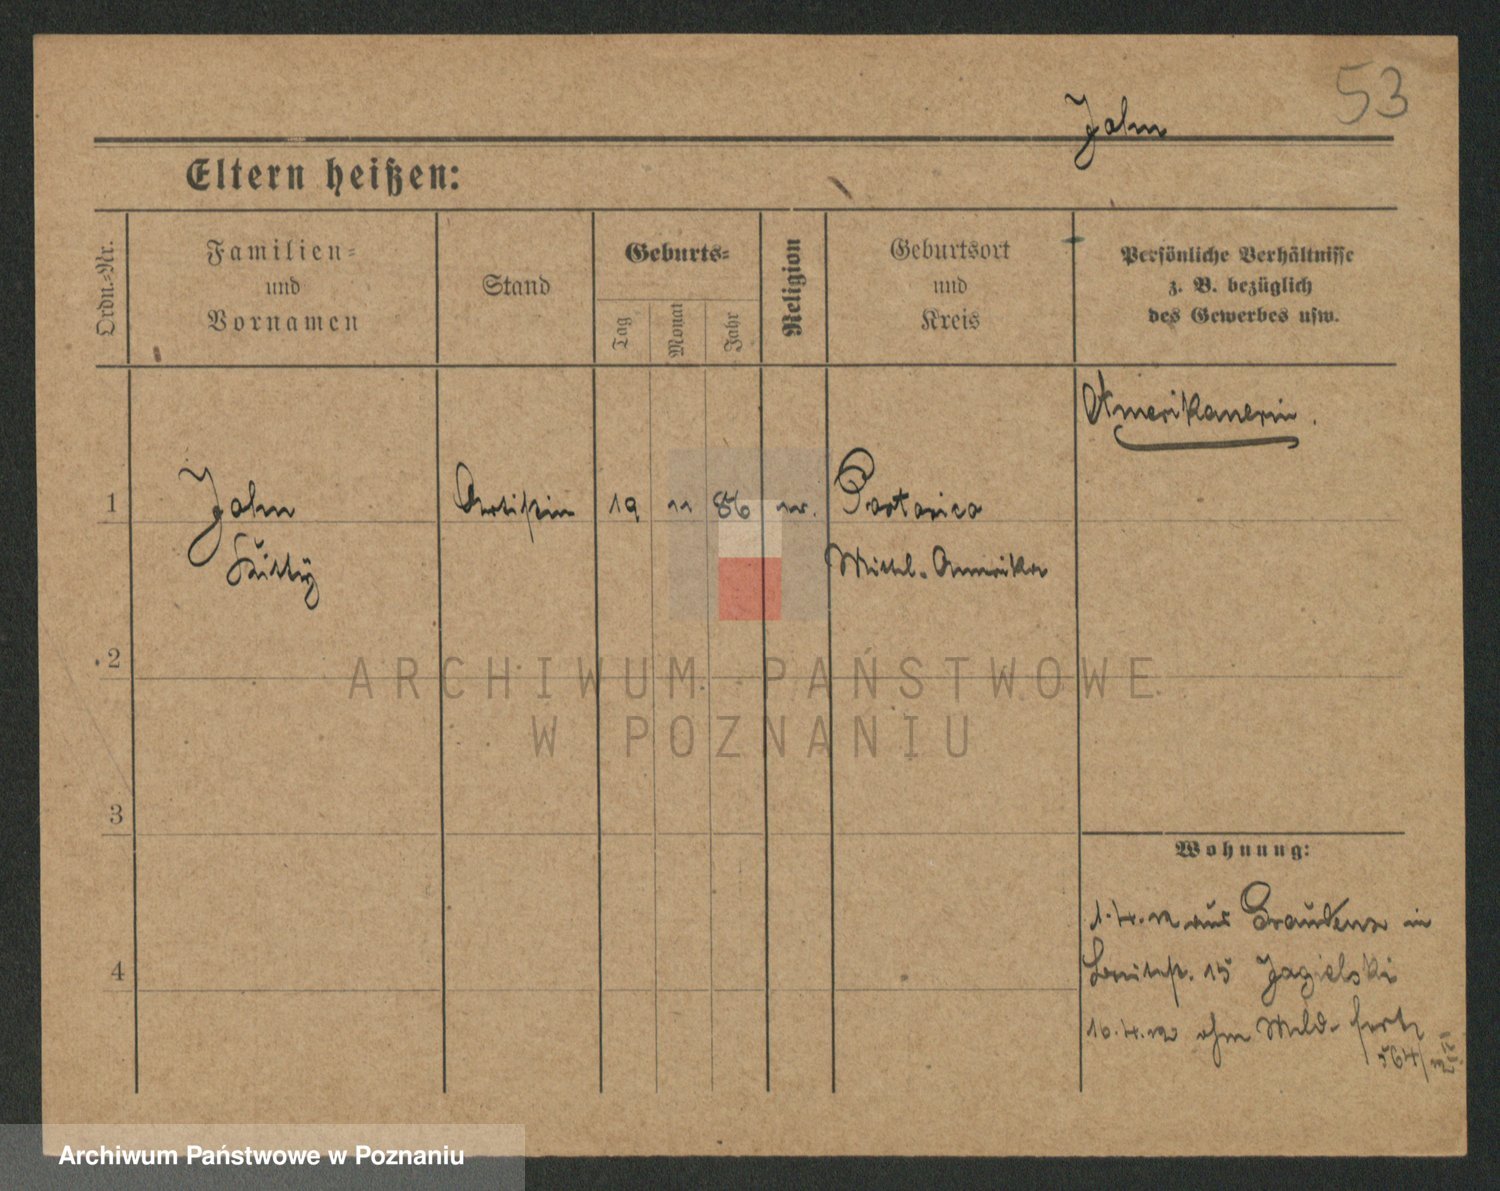 53
John
Eltern heißen:
Ordn.-Nr.
Familien-
und
Vornamen
Stand
Geburts-
Tag
Monat
Jahr
Religion
Geburtsort
und
Kreis
Persönliche Verhältnisse
z. B. bezüglich
des Gewerbes usw.
Amerikanerin.
1 John Artistin 19 11 86 Portorico
Kitty Mittel-Amerika
2
ARCHIWUM PAŃSTWOWE
W POZNANIU
3
Wohnung:
1.4.12 aus Graudenz in
4
15 Jagielski
10.4.12 ohne Meld. fort
564/
Archiwum Państwowe w Poznaniu